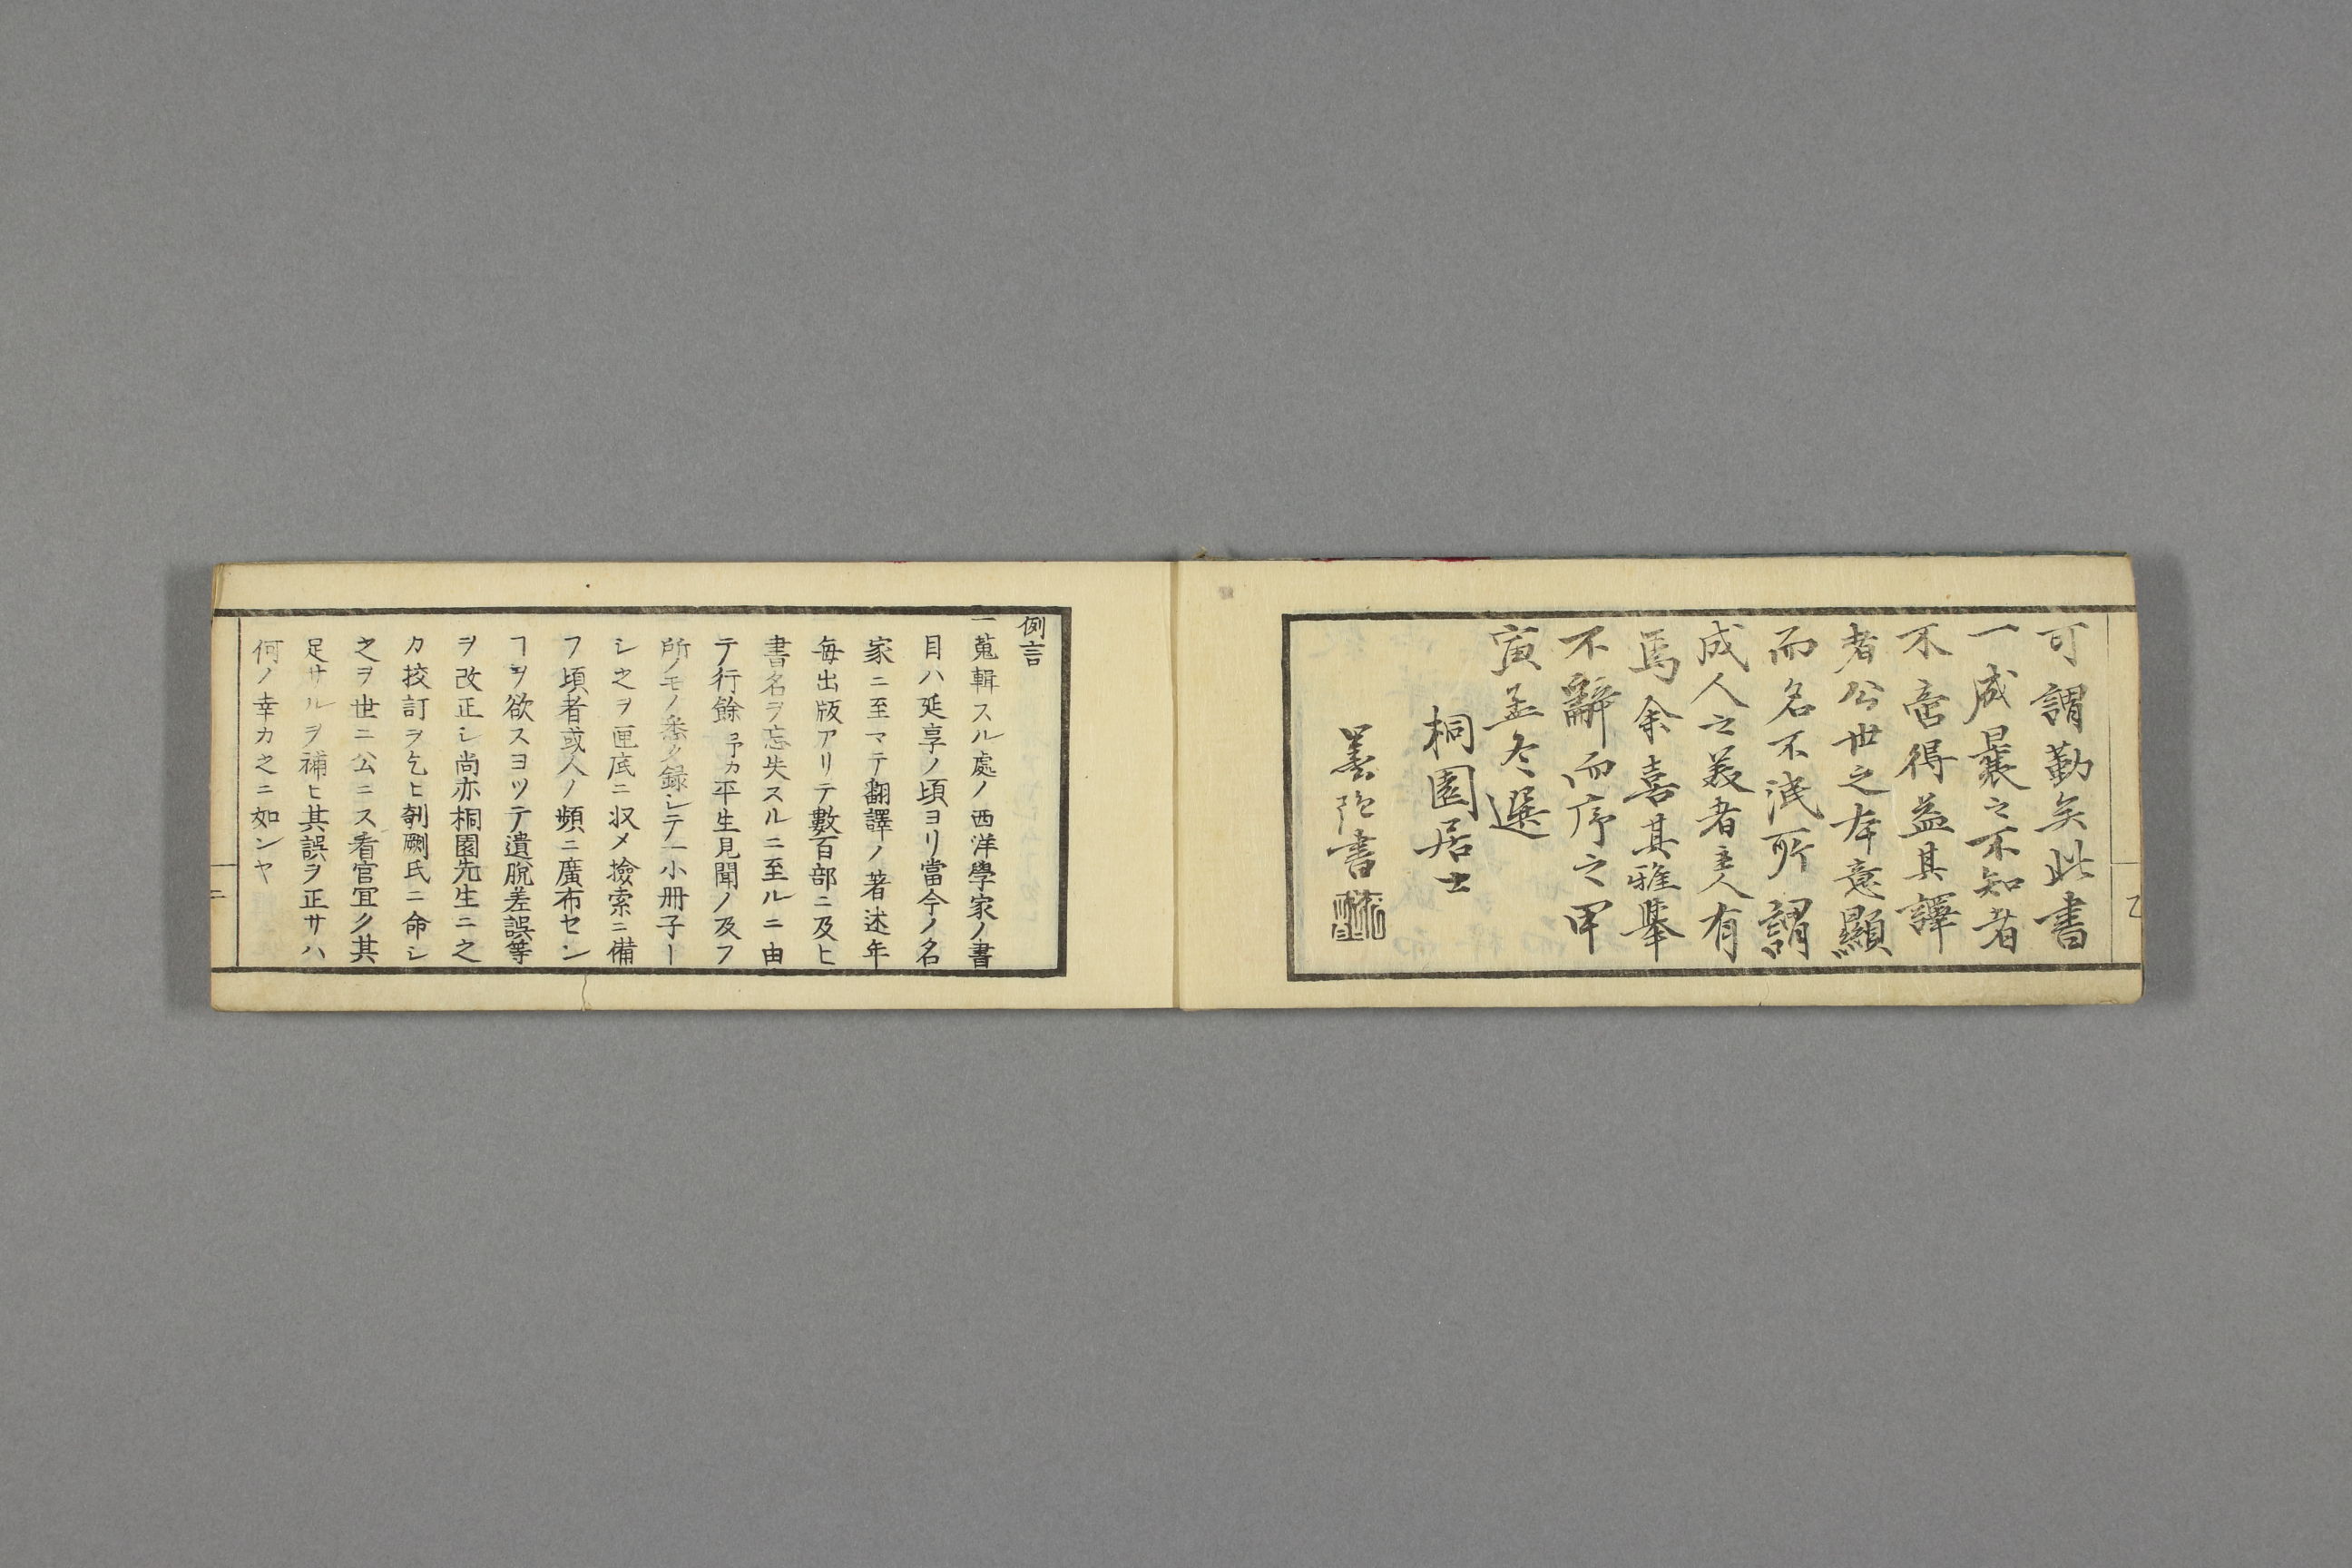 可謂勤矣此書
一成曩之不知者
不啻得益其譯
者公世之本意顯
而名不泯所謂
成人之美者主人有
焉余喜其雅擧
不辭而序之甲
寅孟冬選
桐園居士
善陀書
乙
例言
一蒐輯スル處ノ西洋學家ノ書
目ハ延享ノ頃ヨリ當今ノ名
家ニ至マテ翻譯ノ著述年
每出版アリテ數百部ニ及ヒ
書名ヲ忘失スルニ至ルニ由
テ行餘予カ平生見聞ノ及フ
所ノモノ悉ク録シテ一小冊子ー
シ之ヲ匣底ニ収メ撿索ニ備
フ頃者或人ノ頻ニ廣布セン
ヿヲ欲スヨツテ遺脱差誤等
ヲ改正シ尚亦桐園先生ニ之
カ挍訂ヲ乞ヒ剞劂氏ニ命シ
之ヲ世ニ公ニス看官冝ク其
足サルヲ補ヒ其誤ヲ正サハ
何ノ幸カ之ニ如ンヤ
二